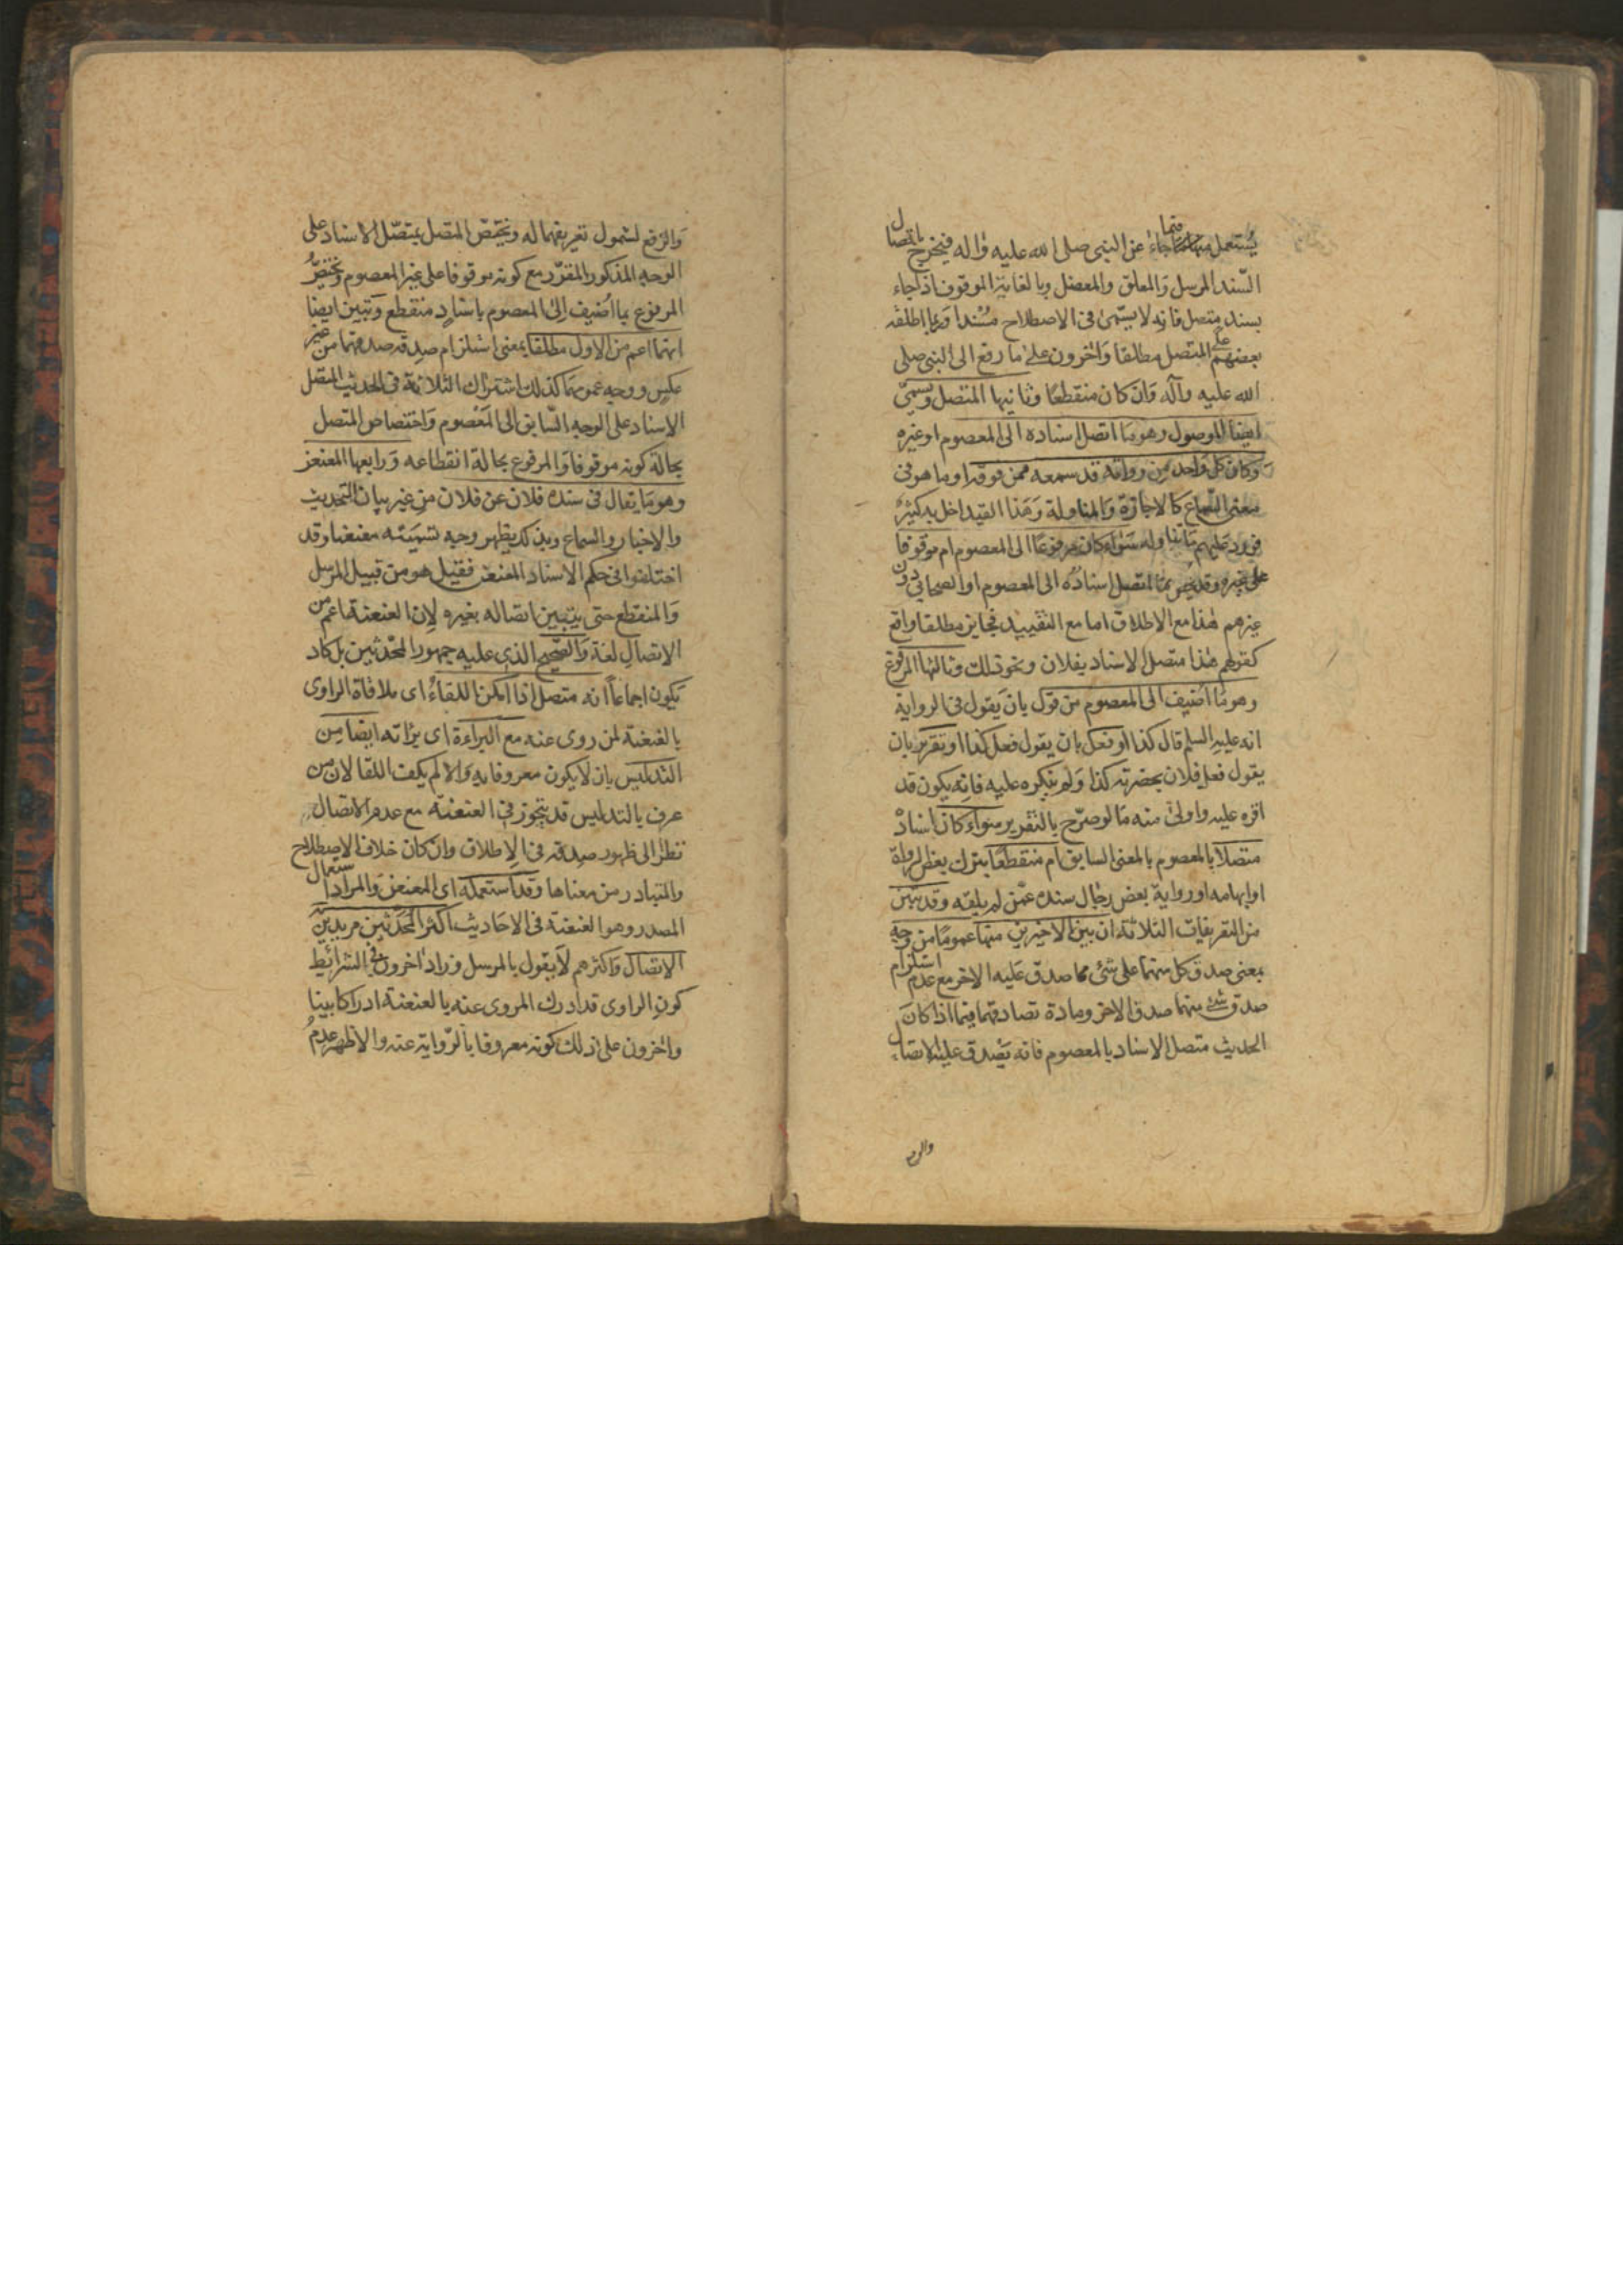 يستعمل فيما جاء عن النبي صلى الله عليه وآله فيخرج باتصال
السّند المرسل والمعلق والمعضل وبالغاية الموقوف اذا جاء
بسند متصل فانه لا يسمّى في الاصطلاح مسندا وربما اطلقه
بعضهم على المتصل مطلقا وآخرون على ما رفع الى النبي صلى
الله عليه وآله وان كان منقطعًا وثانيها المتصل ويسمّى
ايضا الموصول وهو ما اتصل اسناده الى المعصوم او غيره
وكان كل واحد من رواته قد سمعه ممن فوقه او ما هو في
معنى السّماع كالاجازة والمناولة وهذا القيد اخل به كثير
فورد عليهم ما تناوله سواء كان مرفوعًا الى المعصوم ام موقوفا
على غيره وقد يخص بما اتصل اسناده الى المعصوم او الصحابي دون
غيرهم هذا مع الاطلاق اما مع التقييد فجايز مطلقا واقع
كقولهم هذا متصل الاسناد بفلان ونحو ذلك وثالثها المرفوع
وهو ما اضيف الى المعصوم من قول بان يقول في الرواية
انه عليه السلم قال كذا او فعل بان يقول فعل كذا او تقرير بان
يقول فعل فلان بحضرته كذا ولم ينكره عليه فانه يكون قد
اقره عليه واولى منه ما لو صرّح بالتقرير سواء كان اسناده
متصلا بالمعصوم بالمعنى السابق ام منقطعًا بترك بعض الرواة
او ابهامه او رواية بعض رجال سنده عمّن لم يلقه وقد تبين
من التعريفات الثلاثة ان بين الاخيرين منها عمومًا من وجه
بمعنى صدق كل منهما على شئ مما صدق عليه الاخر مع عدم استلزام
صدق شئ منهما صدق الاخر ومادة تصادقهما فيما اذا كان
الحديث متصل الاسناد بالمعصوم فانه يصدق عليه الاتصال
والرفع
والرفع لشمول تعريفهما له ويختص المتصل بمتصل الاسناد على
الوجه المذكور المقرّر مع كونه موقوفا على غير المعصوم ويختص
المرفوع بما اضيف الى المعصوم باسناد منقطع وتبين ايضا
انهما اعم من الاول مطلقا بمعنى استلزام صدقه صدقهما من غير
عكس ووجه عمومهما كذلك اشتراك الثلاثة في الحديث المتصل
الاسناد على الوجه السّابق الى المعصوم واختصاص المتصل
بحالة كونه موقوفا والمرفوع بحالة انقطاعه ورابعها المعنعن
وهو ما يقال في سنده فلان عن فلان من غير بيان التحديث
والاخبار والسماع وبذلك يظهر وجه تسميته معنعنا وقد
اختلفوا في حكم الاسناد المعنعن فقيل هو من قبيل المرسل
والمنقطع حتى يتبين اتصاله بغيره لان العنعنة اعم من
الاتصال لغة والصحيح الذي عليه جمهور المحدثين بل كاد
يكون اجماعاً انه متصل اذا امكن اللقاء اى ملاقاة الراوى
بالعنعنة لمن روى عنه مع البراءة اى براته ايضا من
التدليس بان لا يكون معروفا به والا لم يكف اللقا لان من
عرف بالتدليس قد يتجوز في العنعنة مع عدم الاتصال
نظرا الى ظهور صدقه في الاطلاق وان كان خلاف الاصطلاح
والمتبادر من معناها وقد استعمله اى المعنعن والمراد استعمال
المصدر وهو العنعنة في الاحاديث اكثر المحدثين مريدين به
الاتصال واكثرهم لا يقول بالمرسل وزاد آخرون في الشرائط
كون الراوى قد ادرك المروى عنه بالعنعنة ادراكا بينا
وآخرون على ذلك كونه معروفا بالرّواية عنه والاظهر عدم